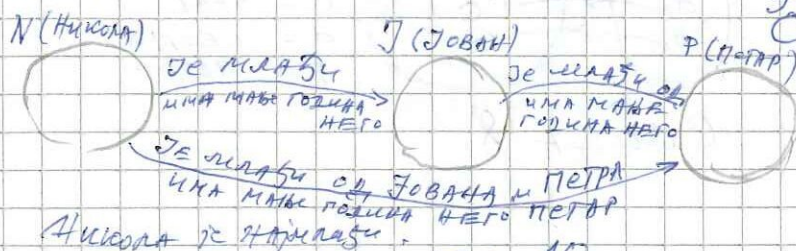 N (НИКОЛА)
J (ЈОВАН)
P (ПЕТАР)
ЈЕ МЛАЂИ
ИМА МАЊЕ ГОДИНА
НЕГО
ЈЕ МЛАЂИ ОД
ИМА МАЊЕ
ГОДИНА НЕГО
ЈЕ МЛАЂИ ОД ЈОВАНА И ПЕТРА
ИМА МАЊЕ ГОДИНА НЕГО ПЕТАР
НИКОЛА ЈЕ НАЈМЛАЂИ.